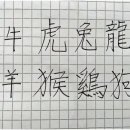 牛虎兔龍
羊猴鷄狗